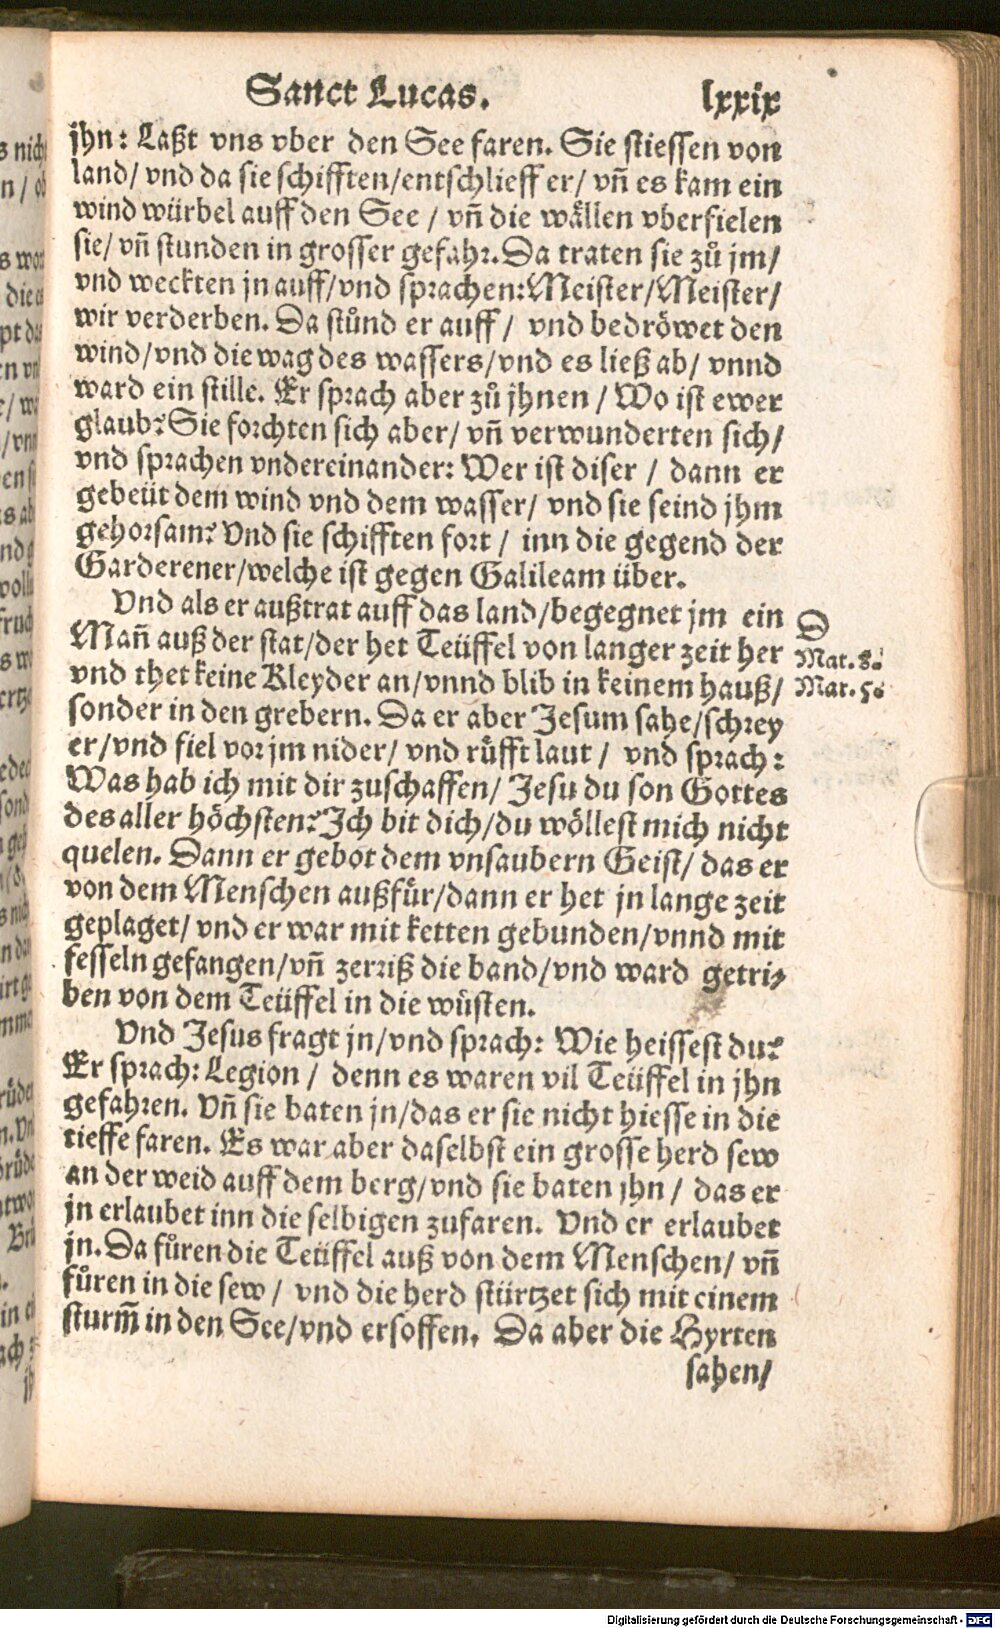 Sanct Lucas. lxxix
jhn: Laßt vns vber den See faren. Sie stiessen von
land/ vnd da sie schifften/entschlieff er/ vñ es kam ein
wind würbel auff den See / vñ die wällen vberfielen
sie/ vñ stunden in grosser gefahr. Da traten sie zů jm/
vnd weckten jn auff/vnd sprachen: Meister/Meister/
wir verderben. Da stůnd er auff / vnd bedröwet den
wind/vnd die wag des wassers/vnd es ließ ab/ vnnd
ward ein stille. Er sprach aber zů jhnen / Wo ist ewer
glaub? Sie forchten sich aber/ vñ verwunderten sich/
vnd sprachen vndereinander: Wer ist diser / dann er
gebeüt dem wind vnd dem wasser/ vnd sie seind jhm
gehorsam? Vnd sie schifften fort / inn die gegend der
Garderener/welche ist gegen Galileam über.
Vnd als er außtrat auff das land/begegnet jm ein
Mañ auß der stat/der het Teüffel von langer zeit her
vnd thet keine Kleyder an/vnnd blib in keinem hauß/
sonder in den grebern. Da er aber Jesum sahe/schrey
er/vnd fiel vor jm nider/ vnd rüfft laut / vnd sprach:
Was hab ich mit dir zuschaffen/ Jesu du son Gottes
des aller höchsten? Ich bit dich/du wöllest mich nicht
quelen. Dann er gebot dem vnsaubern Geist/ das er
von dem Menschen außfür/dann er het jn lange zeit
geplaget/ vnd er war mit ketten gebunden/vnnd mit
fesseln gefangen/vñ zerriß die band/vnd ward getri-
ben von dem Teüffel in die wüsten.
Vnd Jesus fragt jn/vnd sprach: Wie heissest du?
Er sprach: Legion / denn es waren vil Teüffel in jhn
gefahren. Vñ sie baten jn/das er sie nicht hiesse in die
tieffe faren. Es war aber daselbst ein grosse herd sew
an der weid auff dem berg/vnd sie baten jhn / das er
jn erlaubet inn die selbigen zufaren. Vnd er erlaubet
jn. Da fůren die Teüffel auß von dem Menschen/ vñ
fůren in die sew / vnd die herd stürtzet sich mit einem
sturm̃ in den See/vnd ersoffen. Da aber die Hyrten
sahen/
D
Mat. 8.
Mar. 5.
Digitalisierung gefördert durch die Deutsche Forschungsgemeinschaft - DFG